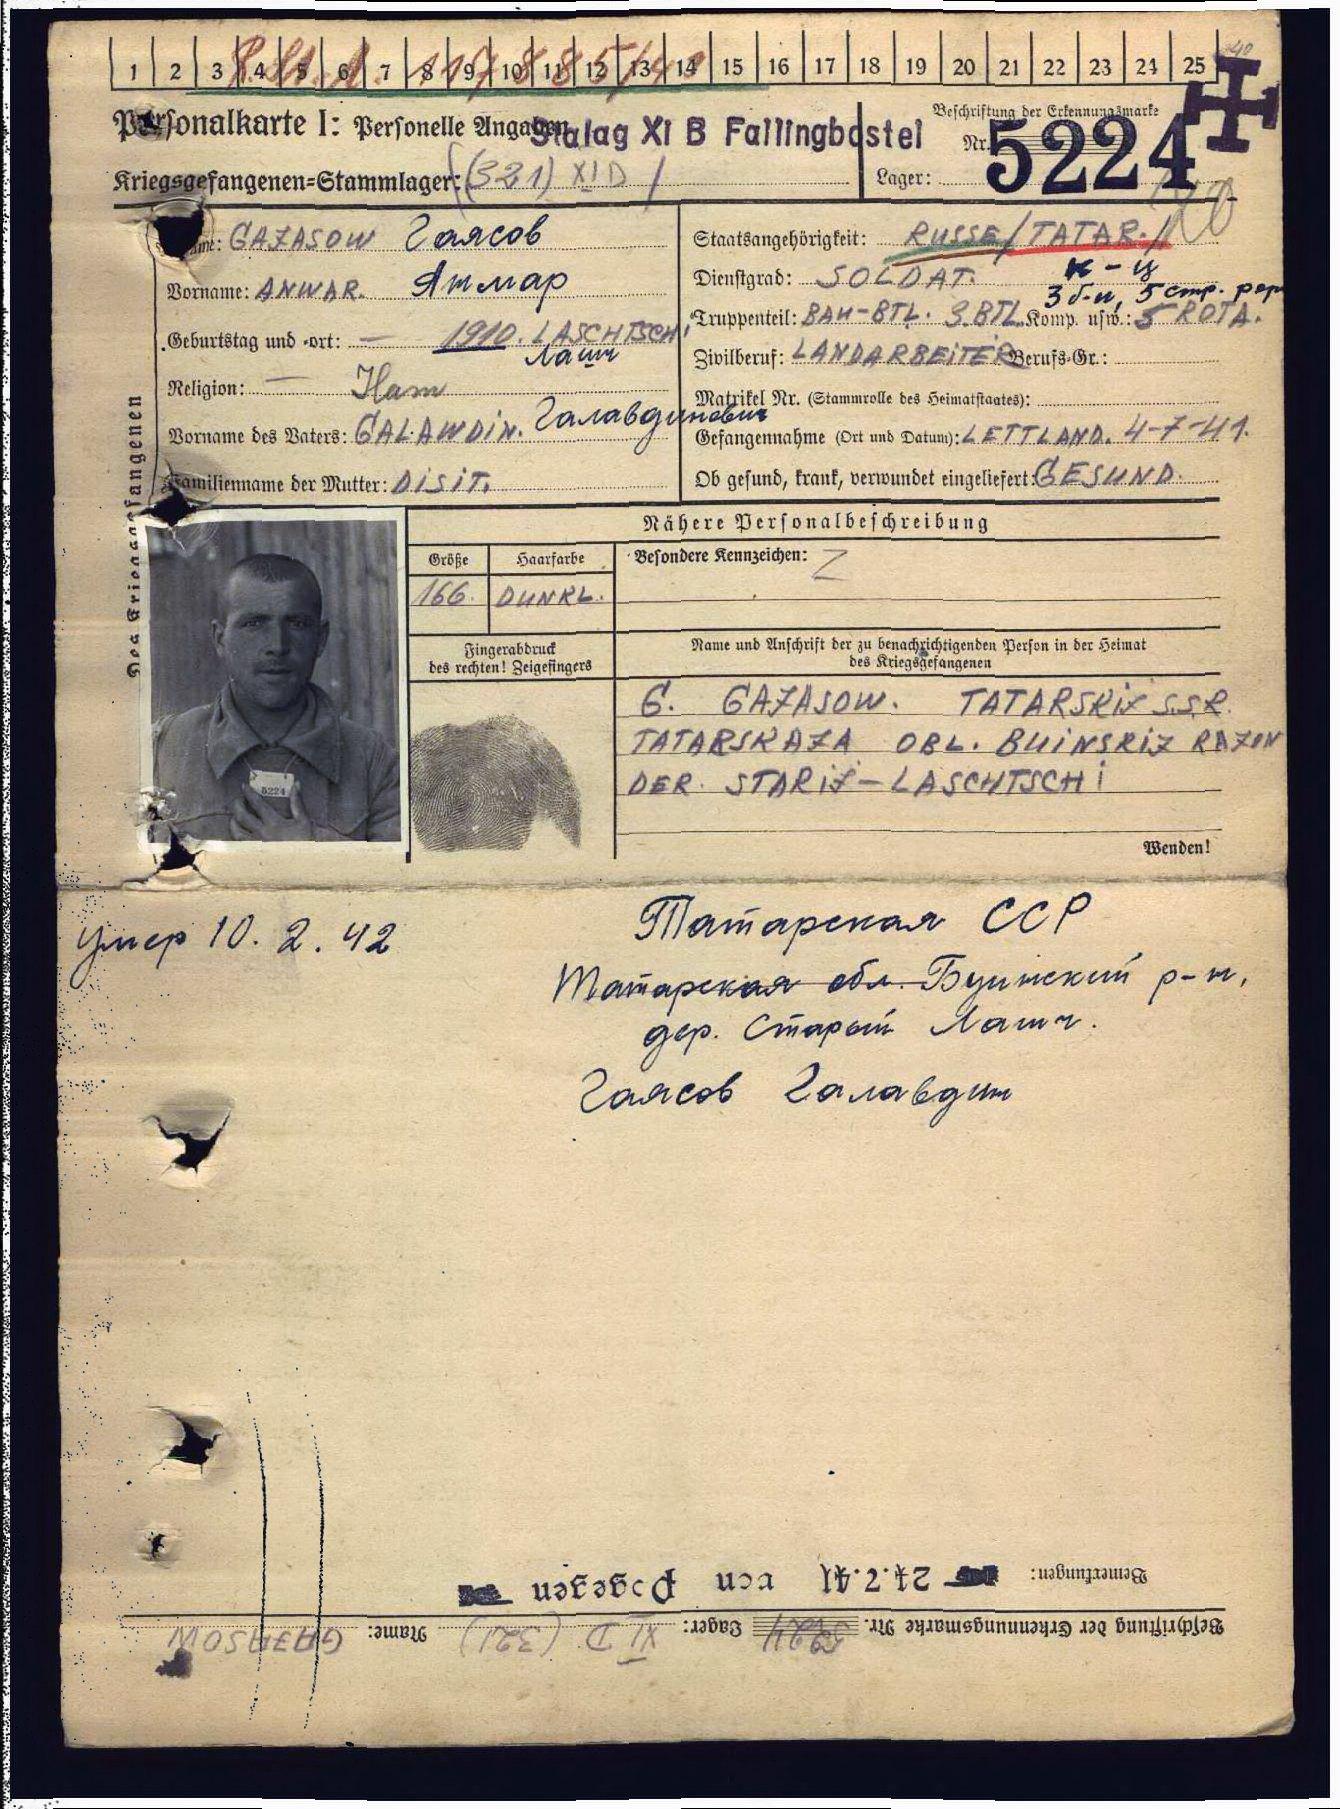 1 2 3 4 5 6 7 8 9 10 11 12 13 14 15 16 17 18 19 20 21 22 23 24 25
Personalkarte I: Personelle Angaben
Stalag XI B Fallingbostel
Beschriftung der Erkennungsmarke
Nr. 5224
Kriegsgefangenen=Stammlager: (321) XI D
Lager:
Des Kriegsgefangenen
Name: GAJASOW Гаясов
Vorname: ANWAR. Анмар
Geburtstag und -ort: — 1910. LASCHTSCHI
Лащи
Religion: —
Vorname des Vaters: GALAWDIN. Галавдинович
Familienname der Mutter: DISIT.
Staatsangehörigkeit: RUSSE/TATAR.
Dienstgrad: SOLDAT. к-ц
3 б-н, 5 стр. рот
Truppenteil: BAH-BTL. 3.BTL. Komp. usw.: 5 ROTA.
Zivilberuf: LANDARBEITER Berufs-Gr.:
Matrikel Nr. (Stammrolle des Heimatstaates):
Gefangennahme (Ort und Datum): LETTLAND. 4-7-41.
Ob gesund, krank, verwundet eingeliefert: GESUND.
Nähere Personalbeschreibung
Größe Haarfarbe Besondere Kennzeichen:
166. DUNKL.
Fingerabdruck
des rechten! Zeigefingers
Name und Anschrift der zu benachrichtigenden Person in der Heimat
des Kriegsgefangenen
5224
G. GAJASOW. TATARSKIJ S.S.R.
TATARSKAJA OBL. BUINSKIJ RAJON
DER. STARIJ-LASCHTSCHI
Wenden!
умер 10.2.42
Татарская ССР
Татарская обл. Буинский р-н,
дер. Старый Лащ.
Гаясов Галавдин
Bemerkungen: 24.7.41 von Pogegen
Beschriftung der Erkennungsmarke Nr. 5224 Lager: XI D (321) Name: GAJASOW